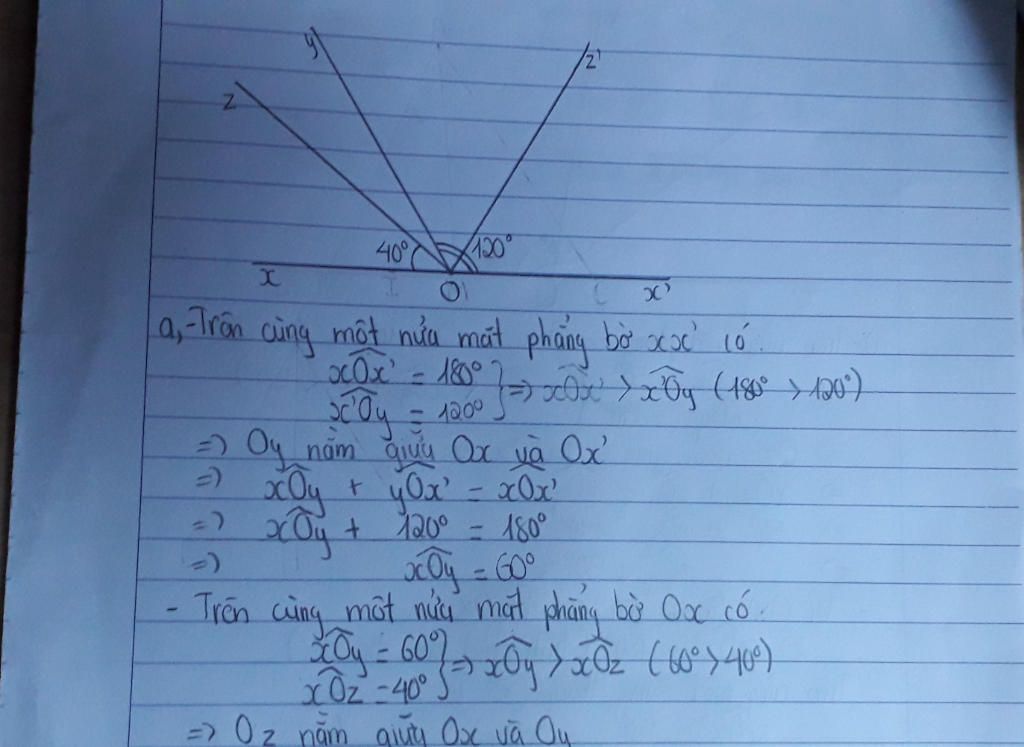 y
z'
z
40°
120°
x
O
x'
a, - Trên cùng một nửa mặt phẳng bờ xx' có.
xOx' = 180°
x'Oy = 120° } => xOx' > x'Oy (180° > 120°)
=> Oy nằm giữa Ox và Ox'
=> xOy + yOx' = xOx'
=> xOy + 120° = 180°
=> xOy = 60°
- Trên cùng một nửa mặt phẳng bờ Ox có.
xOy = 60°
xOz = 40° } => xOy > xOz (60° > 40°)
=> Oz nằm giữa Ox và Oy